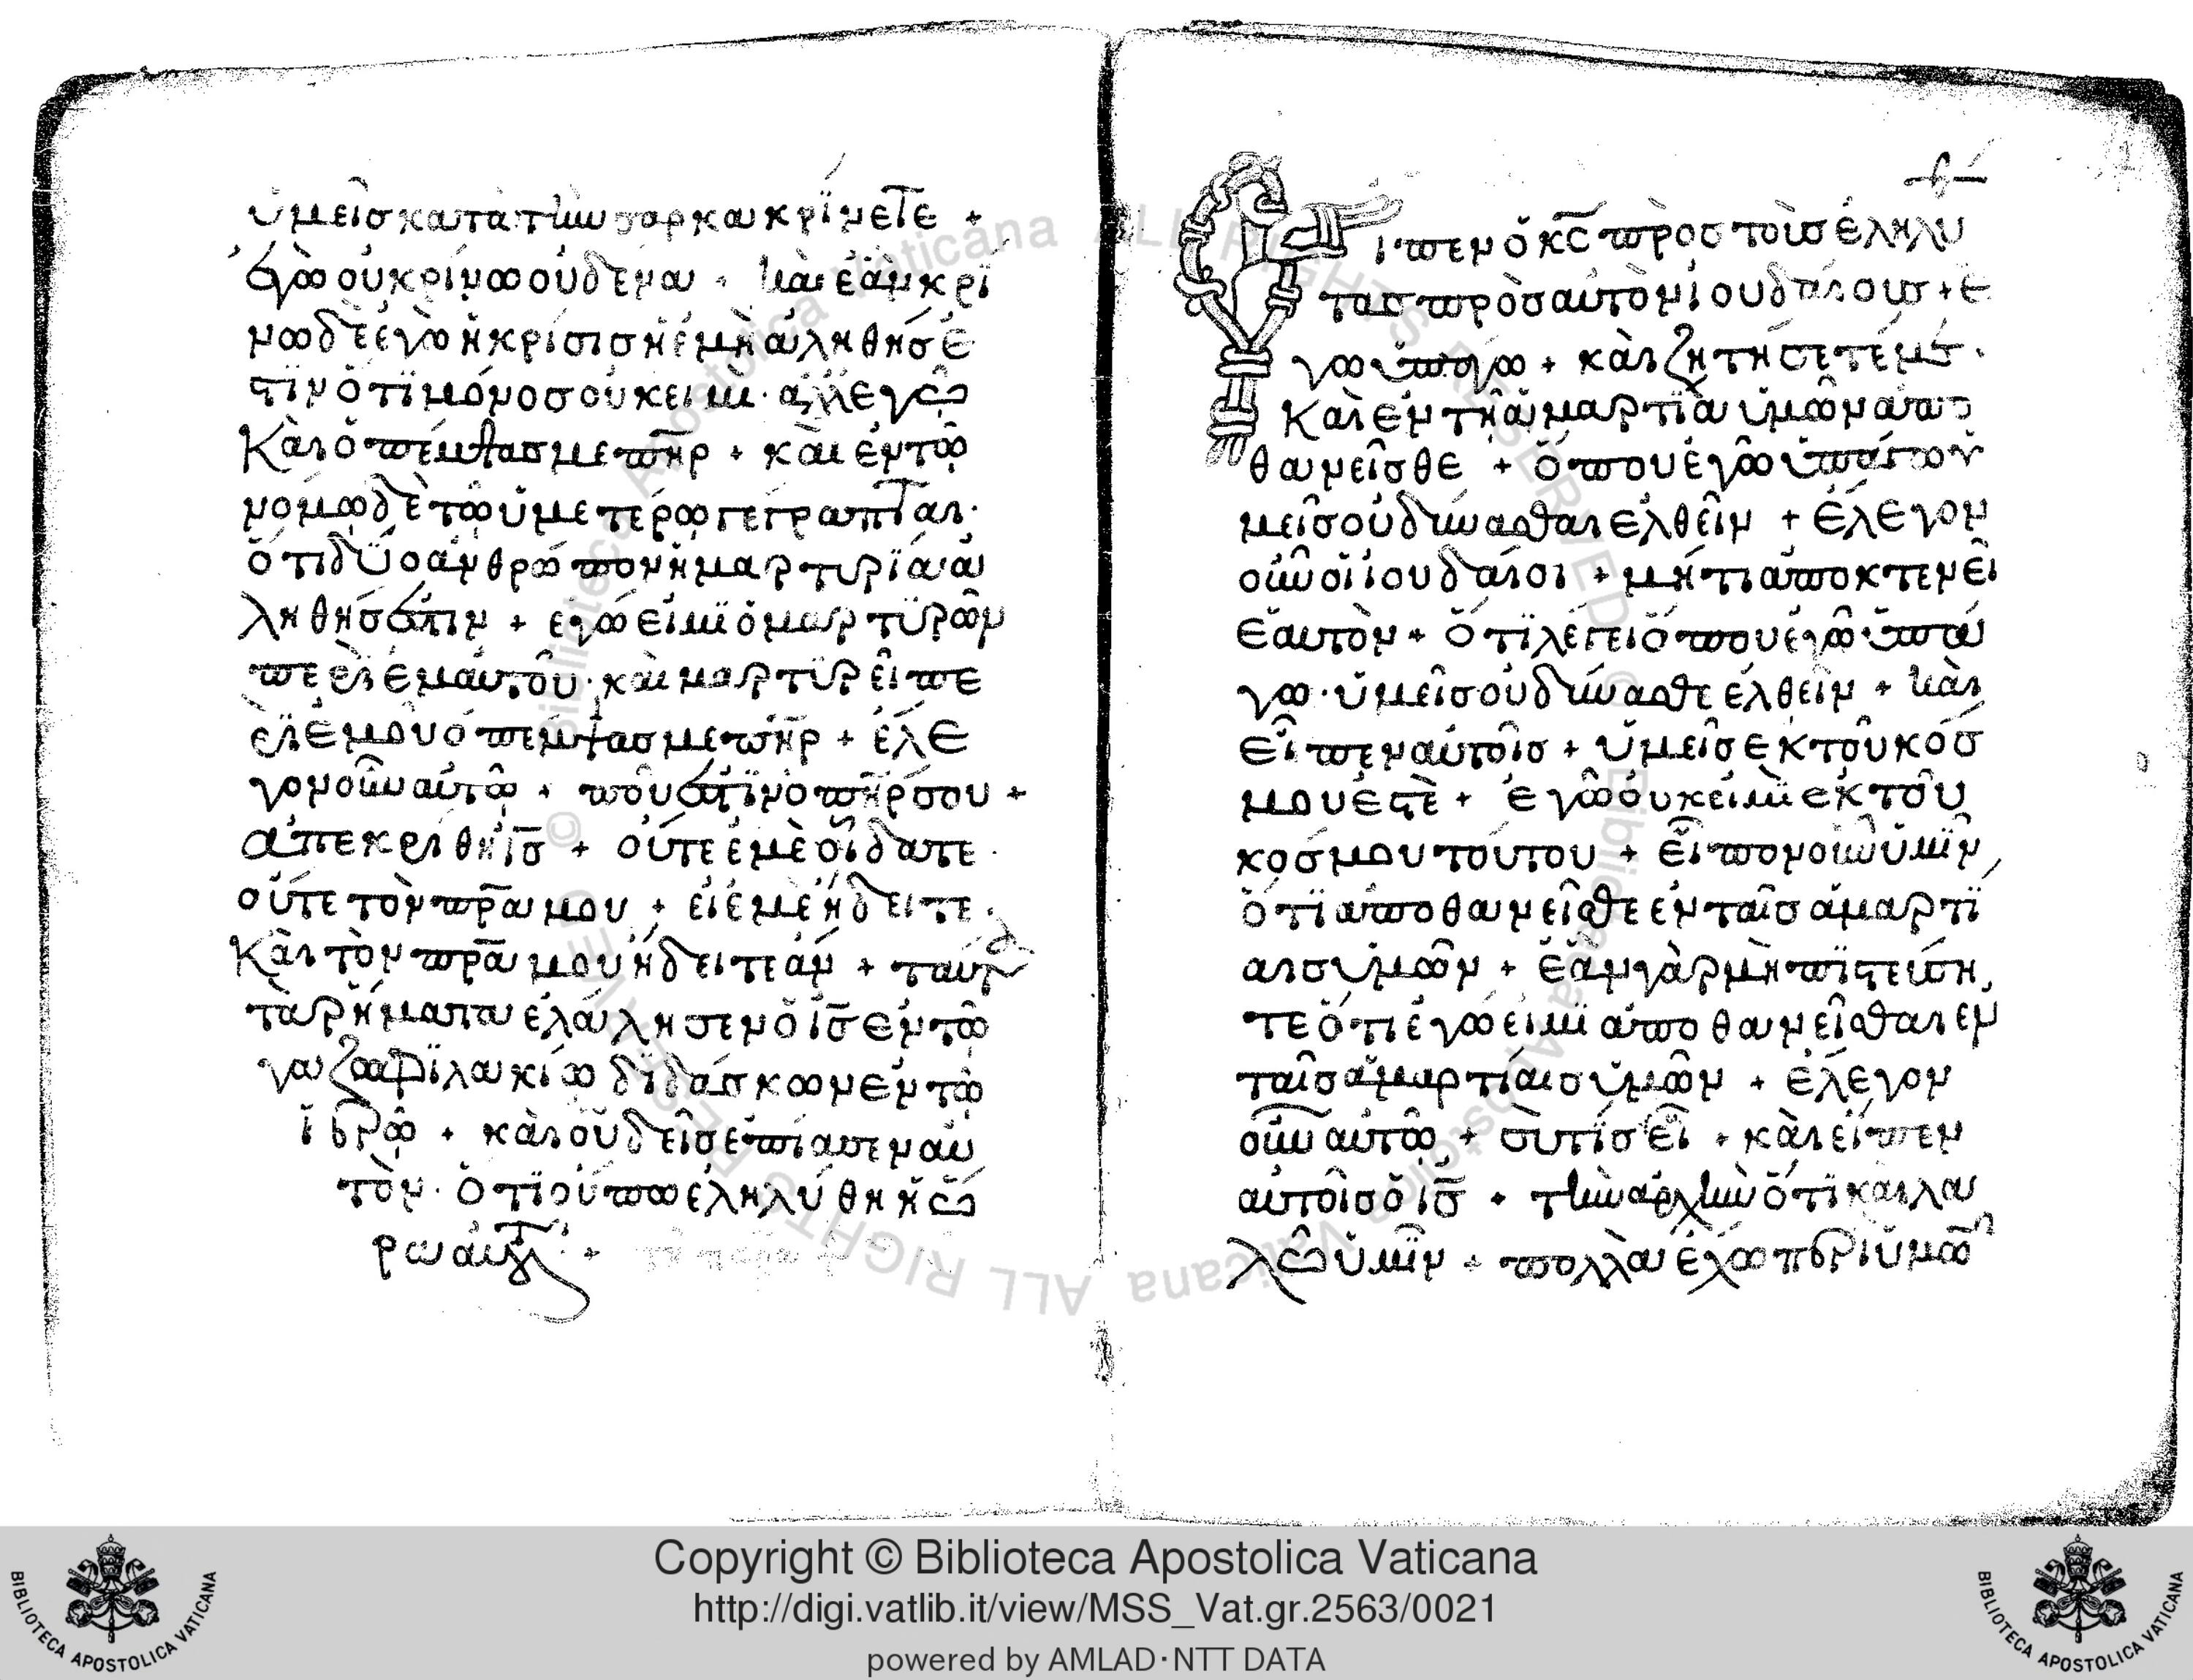 ὑμεῖσ κατα τὴν σαρκα κρίνετε +
ἐγὼ οὐ κρίνω οὐδένα · καὶ ἐὰν κρΐ
νω δὲ ἐγὼ ἡ κρίσισ ἡ ἐμὴ ἀληθήσ ἐ
στϊν ὅτϊ μόνοσ οὐκ ειμὶ · ἀλλ εγὼ
Καὶ ὁ πέμψασ με πη̅ρ + καὶ ἐν τῶ
νομω δὲ τῶ ὑμετέρω γεγραπται ·
ὅτι δύο ἀνθρώπον ἡ μαρτυρΐα ἀ
ληθήσ ἐστιν + εγώ εἰμϊ ὁ μαρτϋρῶν
περὶ ἐμαυτοῦ · καὶ μαρτϋρεῖ πε
ρὶ ἐμοῦ ὁ πέμψασ με πη̅ρ + ἔλε
γον οὖν αὐτῶ + ποῦ ἐστϊν ὁ πη̅ρ σου +
ἀπεκρίθη ἰ̅σ + οὔτε ἐμὲ οἴδατε ·
οὔτε τὸν πρ̅α μου + εἰ ἐμὲ ἤδειτε ·
Καὶ τὸν πρ̅α μου ἤδειτε ἄν + ταῦτα
τὰ ρήματα ἐλάλησεν ὁ ἰ̅σ ἐν τῶ
γαζοφϊλακίω δϊδάσκων ἐν τῶ
ἱερῶ + καὶ οὐδεὶσ ἐπίασεν αὐ
τόν · ὅτϊ οὔπω ἐληλύθη ἡ ὥ
ρα αὐτοῦ +
ιπεν ὁ κ̅σ πρὸσ τοὺσ ἐληλυ
τασ πρὸσ αὐτὸν ἰουδαίουσ + ἐ
γω ὑπάγω + καὶ ζητήσετέ με ·
Καὶ ἐν τῆ ἁμαρτΐα ὑμῶν ἀπο
θανεῖσθε + ὅπου ἐγὼ ὑπάγω ὑ
μεῖσ οὐ δύνασθαι ἐλθεῖν + ἔλεγον
οὖν οἱ ἰουδαίοι + μήτι ἀποκτενεῖ
ἑαυτὸν + ὅτϊ λέγει ὅπου ἐγὼ ὑπά
γω · ὑμεῖσ οὐ δύνασθε ἐλθεῖν + καὶ
εἶπεν αὐτοῖσ + ὑμεῖσ ἐκ τοῦ κόσ
μου ἐστὲ + ἐγὼ οὐκ εἰμὶ ἐκ τοῦ
κοσμου τούτου + εἶπον οὖν ὑμῖν,
ὅτϊ ἀποθανεῖσθε ἐν ταῖσ ἁμαρτΐ
αισ ὑμῶν + ἐὰν γὰρ μὴ πϊστεύση
τε ὅτι ἐγώ εἰμϊ ἀποθανεῖσθαι ἐν
ταῖσ ἁμαρτίαισ ὑμῶν + ἔλεγον
οὖν αὐτῶ + σὺ τίσ εἶ + καὶ εἶπεν
αὐτοῖσ ὁ ἰ̅σ + τὴν ἀρχὴν ὅτϊ και λα
λῶ ὑμῖν + πολλὰ ἔχω περὶ ὑμῶ̅
Copyright © Biblioteca Apostolica Vaticana
http://digi.vatlib.it/view/MSS_Vat.gr.2563/0021
powered by AMLAD·NTT DATA
BIBLIOTECA APOSTOLICA VATICANA
BIBLIOTECA APOSTOLICA VATICANA